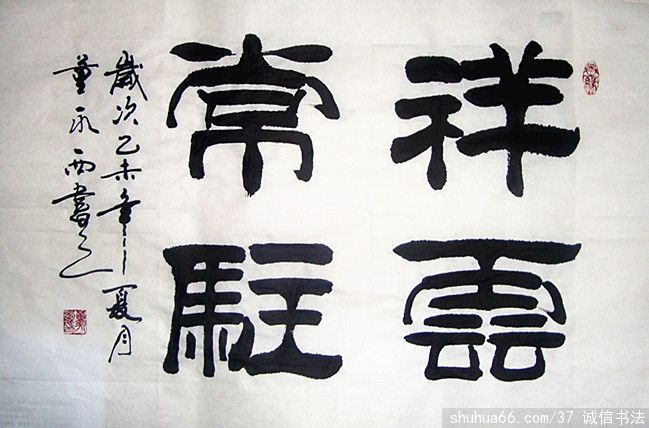 祥雲
常駐
歲次乙未年夏月
董永西書之
shuhua66.com/37 诚信书法